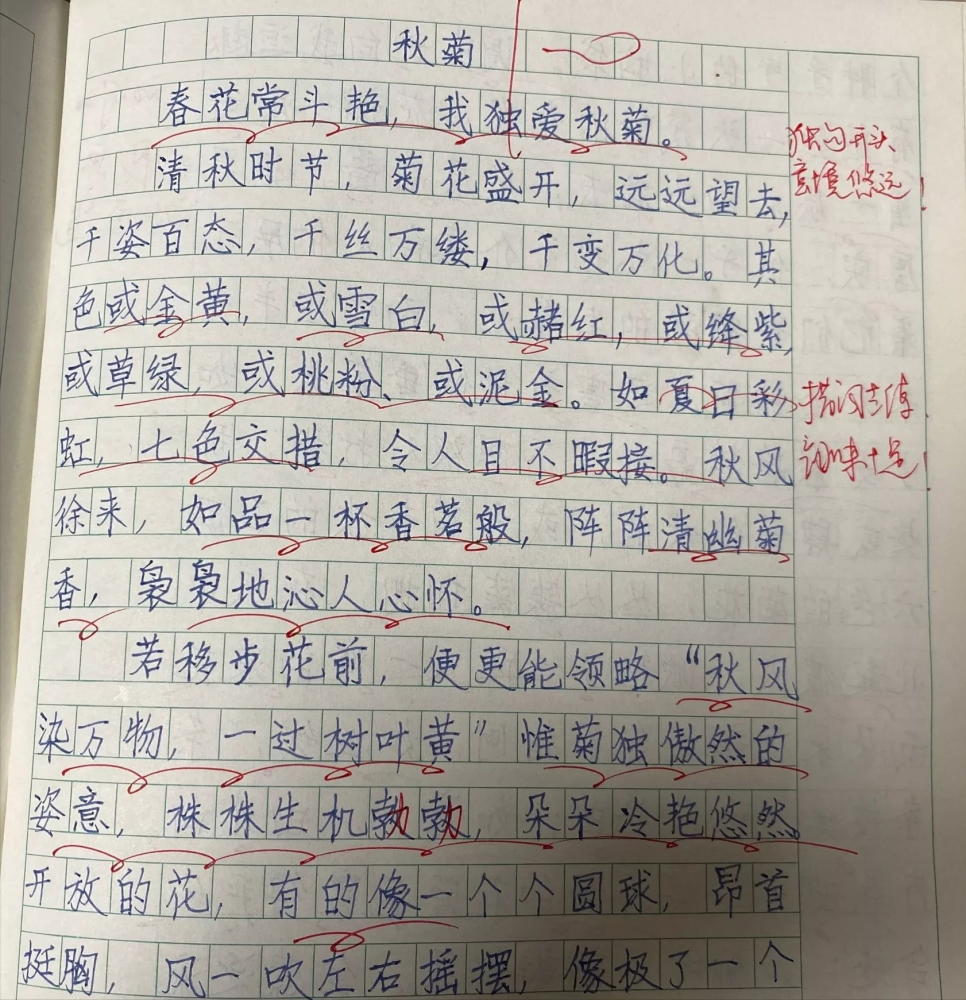 秋菊
春花常斗艳，我独爱秋菊。
独句开头
意境悠远！
清秋时节，菊花盛开，远远望去，
千姿百态，千丝万缕，千变万化。其
色或金黄，或雪白，或赭红，或绛紫，
或草绿，或桃粉、或泥金。如夏日彩
虹，七色交措，令人目不暇接。秋风
徐来，如品一杯香茗般，阵阵清幽菊
香，袅袅地沁人心怀。
若移步花前，便更能领略“秋风
染万物，一过树叶黄”惟菊独傲然的
姿意，株株生机勃勃，朵朵冷艳悠然
开放的花，有的像一个个圆球，昂首
挺胸，风一吹左右摇摆，像极了一个